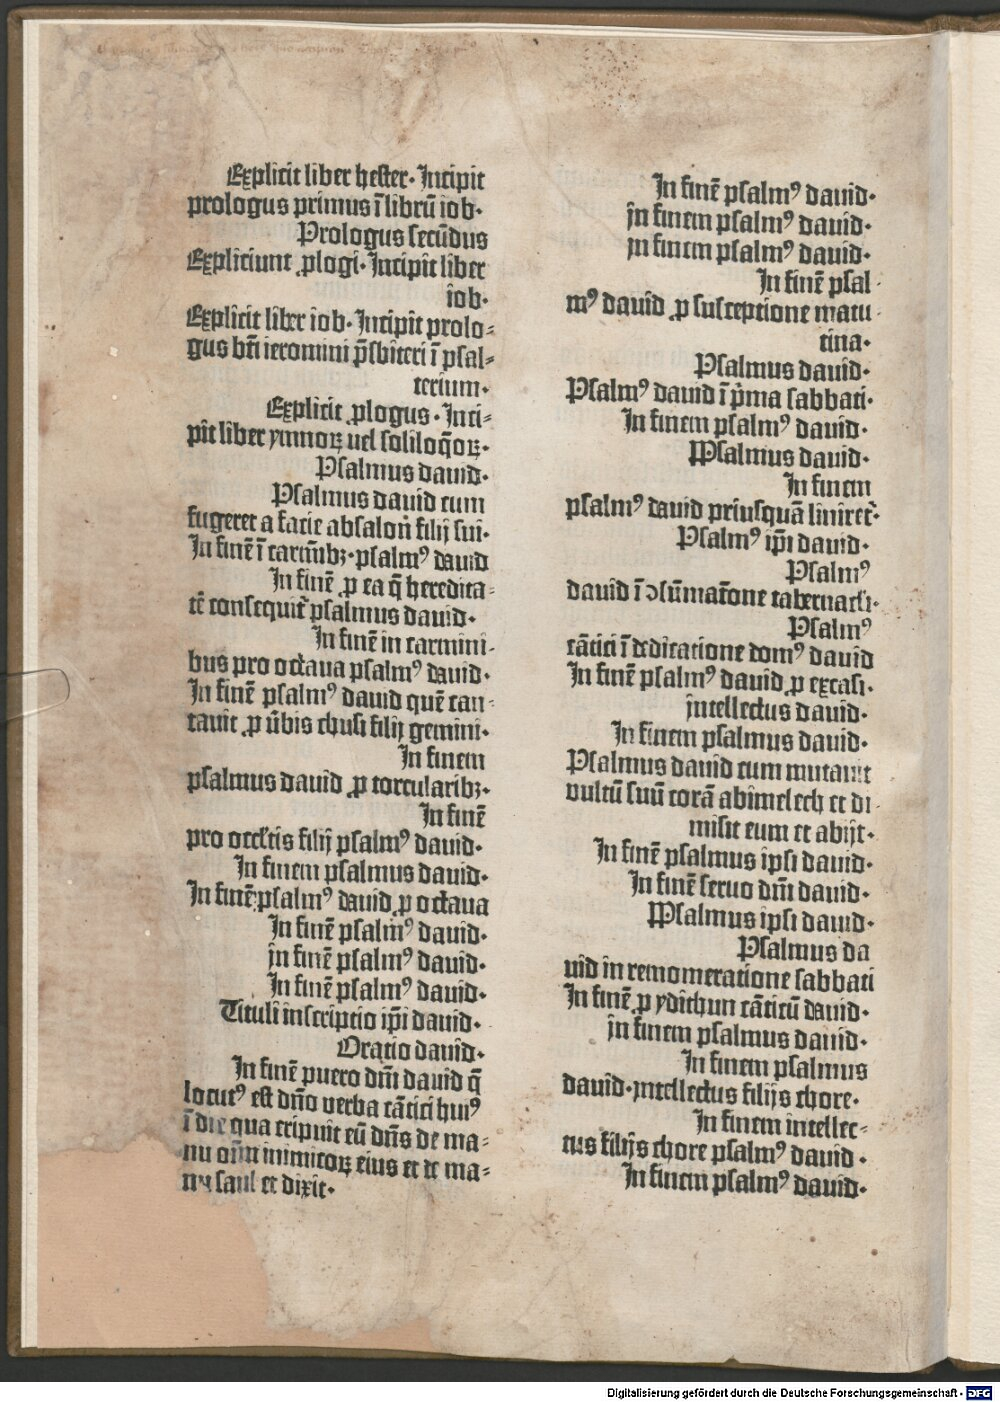 Explicit liber hester· Incipit
prologus primus ī librū iob·
Prologus secūdus
Expliciunt ꝓlogi· Incipit liber
iob·
Explicit liber iob· Incipit prolo⸗
gus bt̄i ieromini p̄sbiteri ī psal⸗
terium·
Explicit ꝓlogus· Inci⸗
pit liber ymnoꝝ uel soliloq̄oꝝ·
Psalmus dauid·
Psalmus dauid cum
fugeret a facie absalon filij sui·
In finē ī carmībꝫ· psalmꝰ dauid
In finē ꝓ ea q̄ heredita⸗
tē consequit̄ psalmus dauid·
In finē in carmini⸗
bus pro octaua psalmꝰ dauid·
In finē psalmꝰ dauid quē can⸗
tauit ꝓ ūbis chusi filij gemini·
In finem
psalmus dauid ꝓ torcularibꝫ·
In finē
pro occl̄tis filij psalmꝰ dauid·
In finem psalmus dauid·
In finē psalmꝰ dauid ꝓ octaua
In finē psalmꝰ dauid·
in finē psalmꝰ dauid·
In finē psalmꝰ dauid·
Tituli inscriptio ip̄i dauid·
Oratio dauid·
In finē puero dn̄i dauid q̄
locutꝰ est dn̄o verba cātici huiꝰ
ī die qua eripuit eū dn̄s de ma⸗
nu oīm inimicoꝝ eius et de ma⸗
nu saul et dixit·
In finē psalmꝰ dauid·
in finem psalmꝰ dauid·
in finem psalmꝰ dauid·
In finē psal⸗
mꝰ dauid ꝓ susceptione matu⸗
tina·
Psalmus dauid·
Psalmꝰ dauid ī p̄ma sabbati·
In finem psalmꝰ dauid·
Psalmus dauid·
In finem
psalmꝰ dauid priusquā liniret̄·
Psalmꝰ ip̄i dauid·
Psalmꝰ
dauid ī ↄsūmat̄one tabernac̄li·
Psalmꝰ
cātici ī dedicatione domꝰ dauid
In finē psalmꝰ dauid ꝓ extasi·
intellectus dauid·
In finem psalmus dauid·
Psalmus dauid cum mutauit
vultū suū corā abimelech et di⸗
misit eum et abijt·
In finē psalmus ipsi dauid·
In finē seruo dn̄i dauid·
Psalmus ipsi dauid·
Psalmus da
uid in rememoratione sabbati
In finē ꝓ ydithun cāticū dauid·
in finem psalmus dauid·
In finem psalmus
dauid· intellectus filijs chore·
In finem intellec⸗
tus filijs chore psalmꝰ dauid·
In finem psalmꝰ dauid·
Digitalisierung gefördert durch die Deutsche Forschungsgemeinschaft - DFG